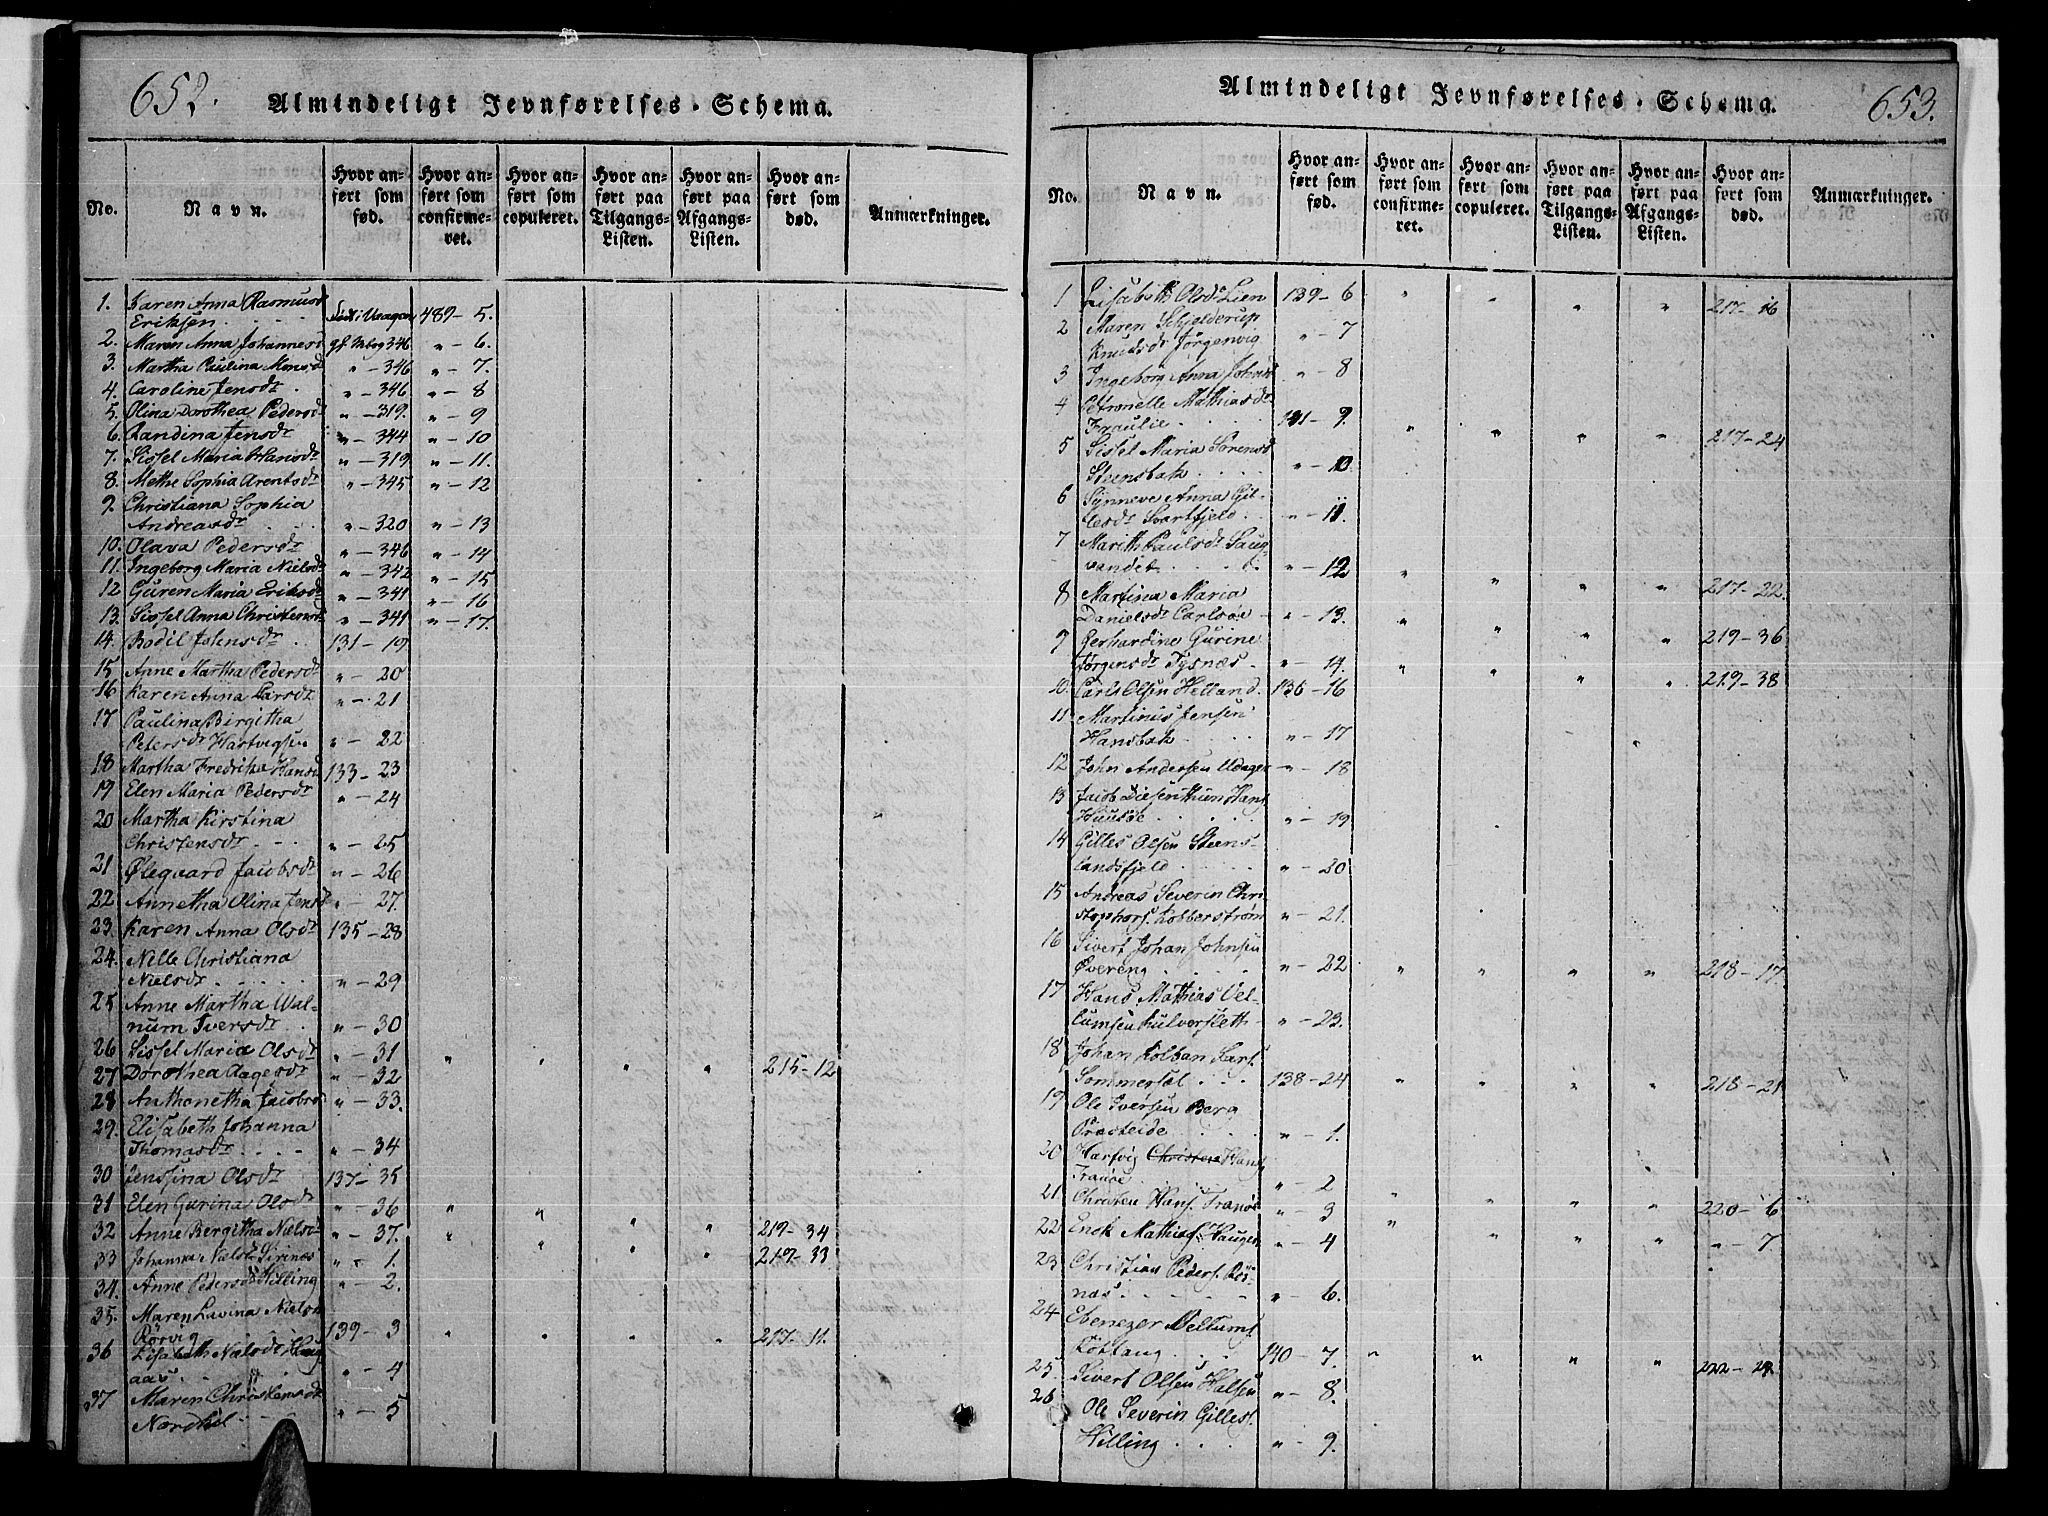 652.
Almindeligt Jevnførelses-Schema.
No.
Navn.
Hvor an-
ført som
fød.
Hvor an-
ført som
confirme-
ret.
Hvor an-
ført som
copuleret.
Hvor an-
ført paa
Tilgangs-
Listen.
Hvor an-
ført paa
Afgangs-
Listen.
Hvor an-
ført som
død.
Anmærkninger.
1. Karen Anna Rasmusd
Eriksen . . . 489-5.
2. Maren Anna Johannesd 346 " - 6.
3. Martha Paulina Monsd " - 346 " - 7.
4. Caroline Jensdr . " - 346 " - 8
5. Olina Dorothea Pedersd " - 319 " - 9
6. Randina Jensdr " - 344 " - 10
7. Sissel Maria Hansdr " - 319 " - 11.
8. Methe Sophia Arentsdr " - 345 " - 12
9. Christiana Sophia
Andreasdr . . . " - 320 " - 13
10. Olava Pedersdr " - 346 " - 14
11. Ingeborg Maria Nielsdr " - 342 " - 15
12 Guren Maria Eriksdr " - 341 " - 16
13. Sissel Anna Christensd " - 341 " - 17.
14. Bodil Johnsdr . . 131 - 19
15 Anne Martha Pedersdr " - 20
16 Karen Anna Larsdr " - 21
17 Paulina Birgitha
Petersdr Hartvigsen " - 22
18 Martha Fredrika Hansd 133 - 23
19 Elen Maria Pedersdr " - 24
20 Martha Kirstina
Christensdr . - - " - 25
21 Ølegaard Jacobsdr " - 26
22 Annetha Olina Jensd " - 27.
23. Karen Anna Olsdr 135 - 28
24. Nille Christiana
Nielsdr . . . . . " - 29
25 Anne Martha Wal-
num Iversdr . . " - 30
26 Sissel Maria Olsdr " - 31 " " " " 215 - 12
27 Dorothea Aagesdr " - 32
28 Anthonetha Jacobsd " - 33.
29. Elisabeth Johanna
Thomasdr . . . . " - 34
30 Jensina Olsdr 137 - 35
31 Elen Gurina Olsdr " - 36
32 Anne Bergitha Nielsd " - 37. " " " " 219 - 34
33 Johanna Nielsdr " - 1. " " " " 219 - 33
34. Anne Pedersdr Hilling " - 2.
35. Maren Lavina Nielsd
Rørvig 139 - 3 " " " " 217 - 11.
36 Lisabeth Nielsdr
aas. . " - 4
37 Maren Christensdr
" - 5
653.
Almindeligt Jevnførelses-Schema.
No.
Navn.
Hvor an-
ført som
fød.
Hvor an-
ført som
confirme-
ret.
Hvor an-
ført som
copuleret.
Hvor an-
ført paa
Tilgangs-
Listen.
Hvor an-
ført paa
Afgangs-
Listen.
Hvor an-
ført som
død.
Anmærkninger.
1 Lisabeth Olsdr Lien 139 - 6 " " " " 217 - 16
2 Maren Schjelderup
Knudsdr Jørgenvig " - 7
3 Ingeborg Anna Johnsd " - 8
4 Petronelle Mathiasdr
141 - 9. " " " " 217 - 24
5 Sissel Maria Sørensd
Steensbak . . . . " - 10
6 Synneve Anna Gil-
lesdr Svartfjeld . . " - 11.
7 Marith Paulsdr Laug-
vandet . . . . . " - 12 " " " " 217 - 22
8 Martina Maria
Danielsdr Carlsøe - " - 13. " " " " 219 - 36
9 Gerhardine Gurine
Jørgensdr Tysnæs. " - 14. " " " " 219 - 38
10. Carl Olsen Helland. 136 - 16
11 Martinus Jensen
Hansbak . . . . " - 17
12 John Andersen " - 18
13 Jacob Hans
" - 19
14 Gilles Olsen Steens-
landsfjeld . . . . " - 20
15 Andreas Severin Chri
stophers. Kobberstrøm " - 21.
16 Sivert Johan Johnsen
Øvereng . . . . " - 22 " " " " 218 - 17.
17 Hans Mathias Vel-
lumsen " - 23.
18 Johan Kolban Lars.
Sommersæl . . . 138 - 24 " " " " 218 - 21
19 Ole Iversen Berg
Præsteide . . . " - 1.
20 Hartvig Christen Hans.
Tranøe . . . . " - 2
21 Christen Hans. Tranøe " - 3 " " " " 220 - 6.
22 Enok Mathias. Haugen " - 4 " " " " " - 7.
23 Christian Peders. Røs-
næs . . . . " - 6.
24 Ebenezer Vellums.
140 - 7. " " " " 222 -
25. Sivert Olsen Halsen " - 8.
26 Ole Severin Gilles.
Hilling . . . " - 9.